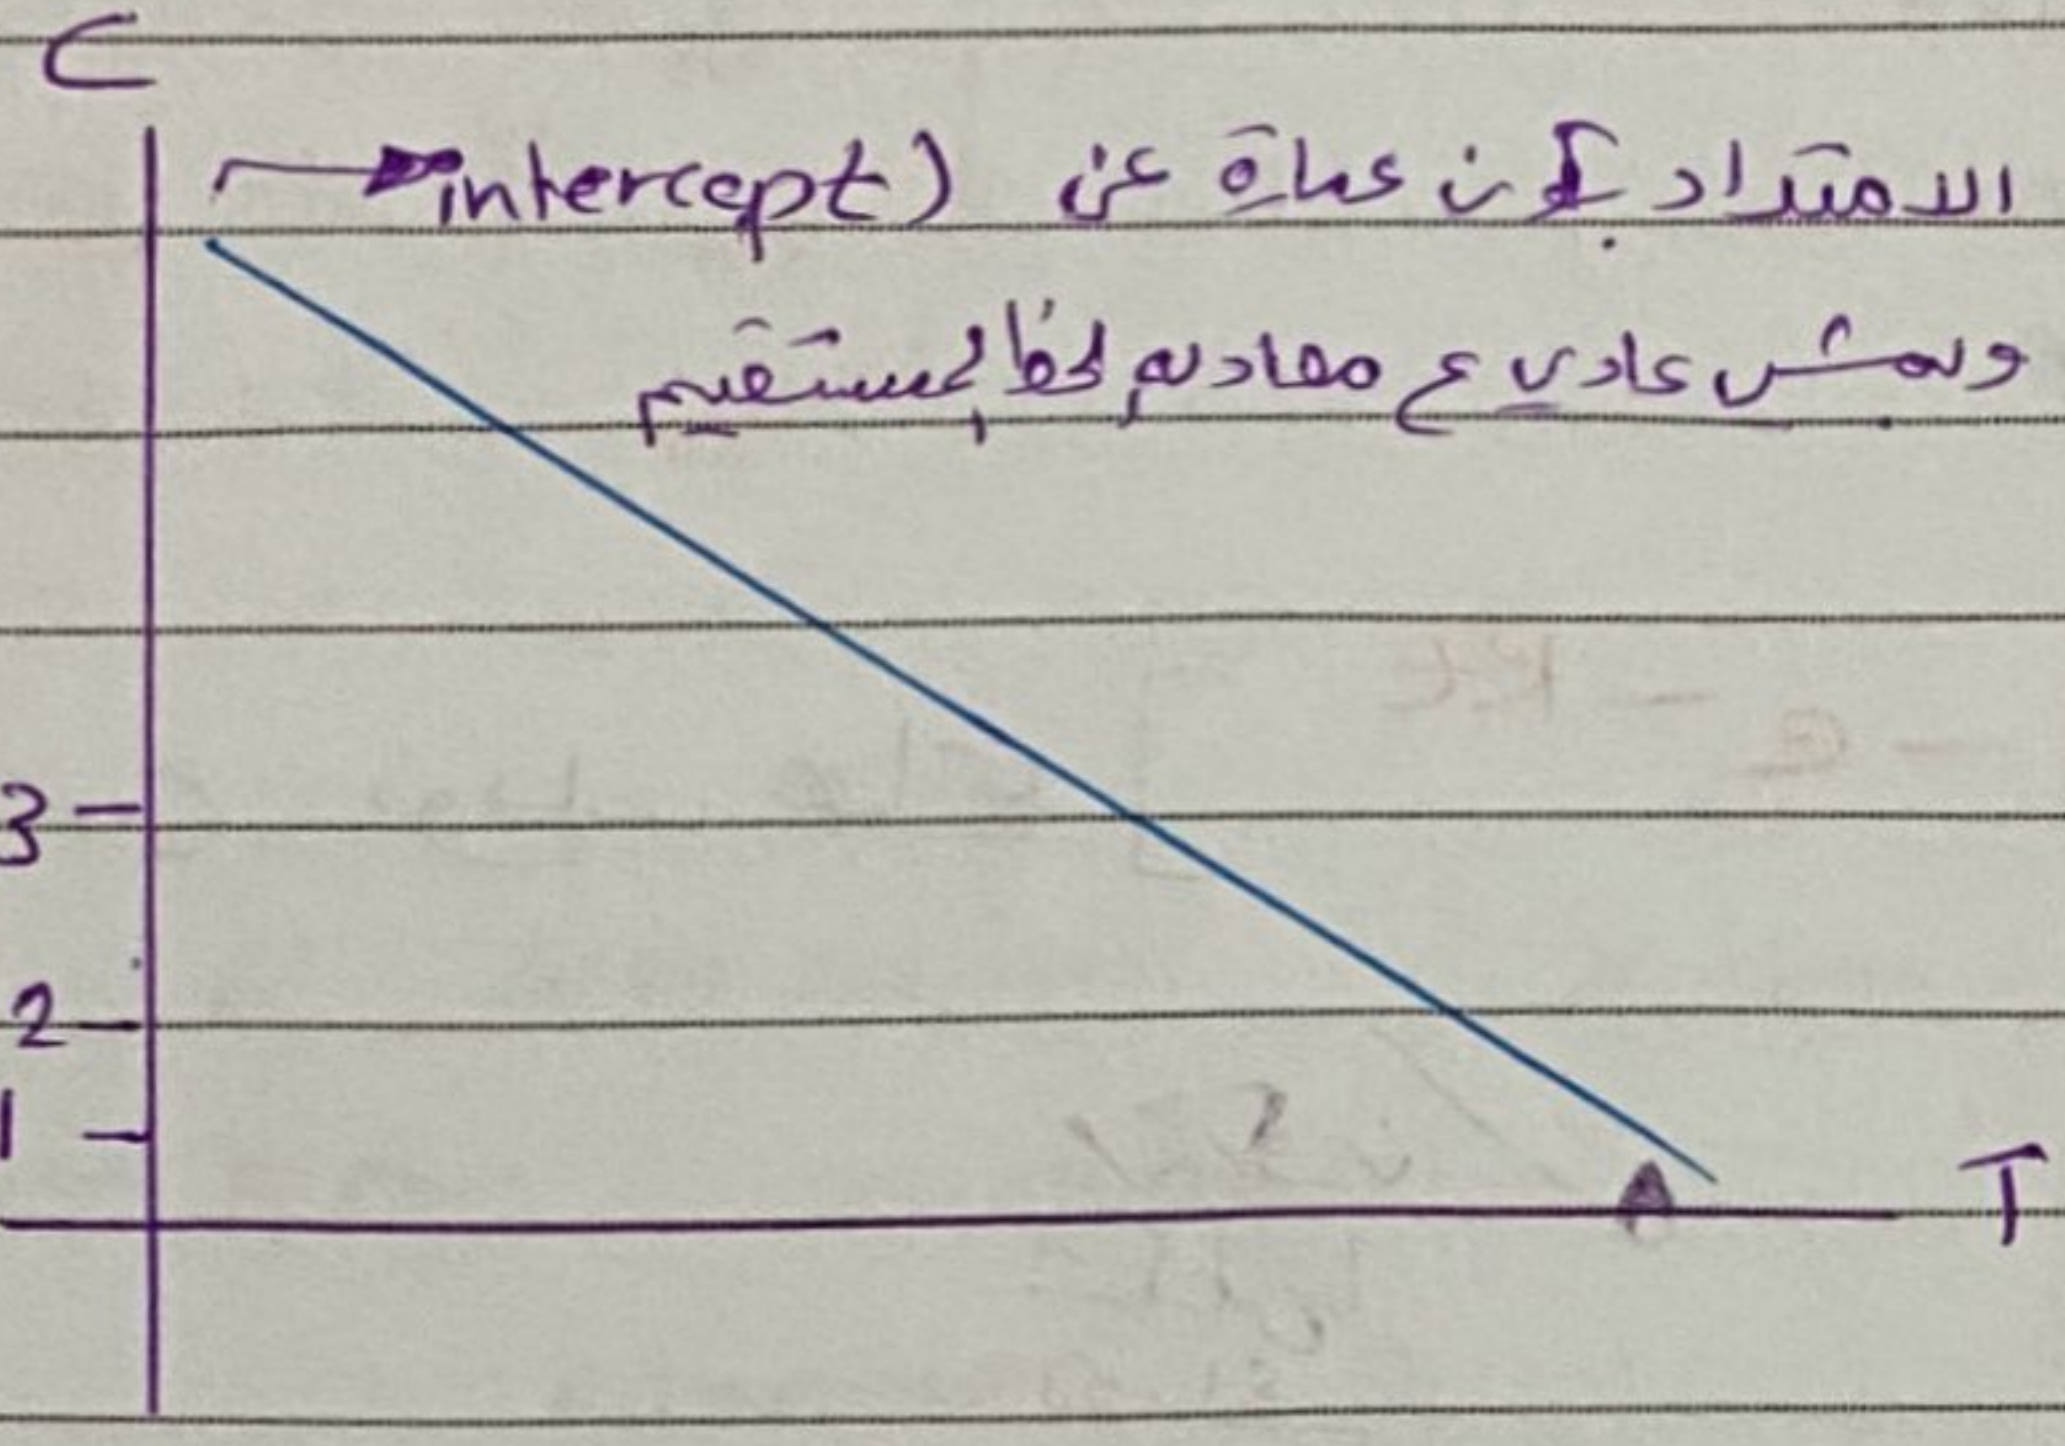 C
الامتداد بكون عبارة عن (intercept
ونمشي عادي ع معادلة الخط المستقيم
3
2
1
T